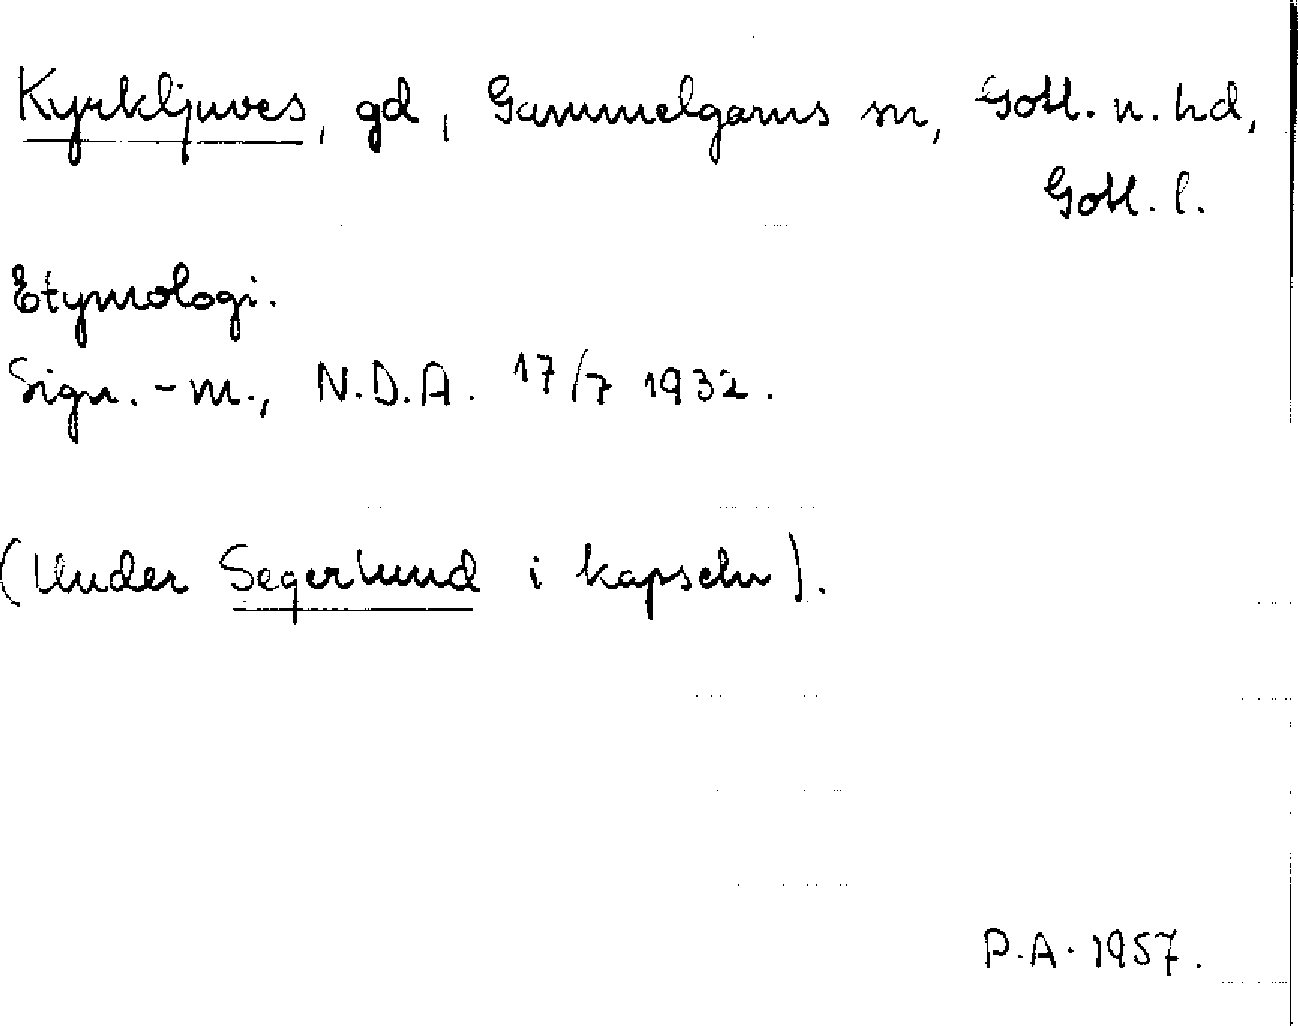 Kyrkljuves, gd, Gammelgarns sn, Gotl. n. hd,
Gotl. l.
Etymologi.
Sign. -m., N.D.A. 17/7 1932.
(Under Segerlund i kapseln).
P.A. 1957.